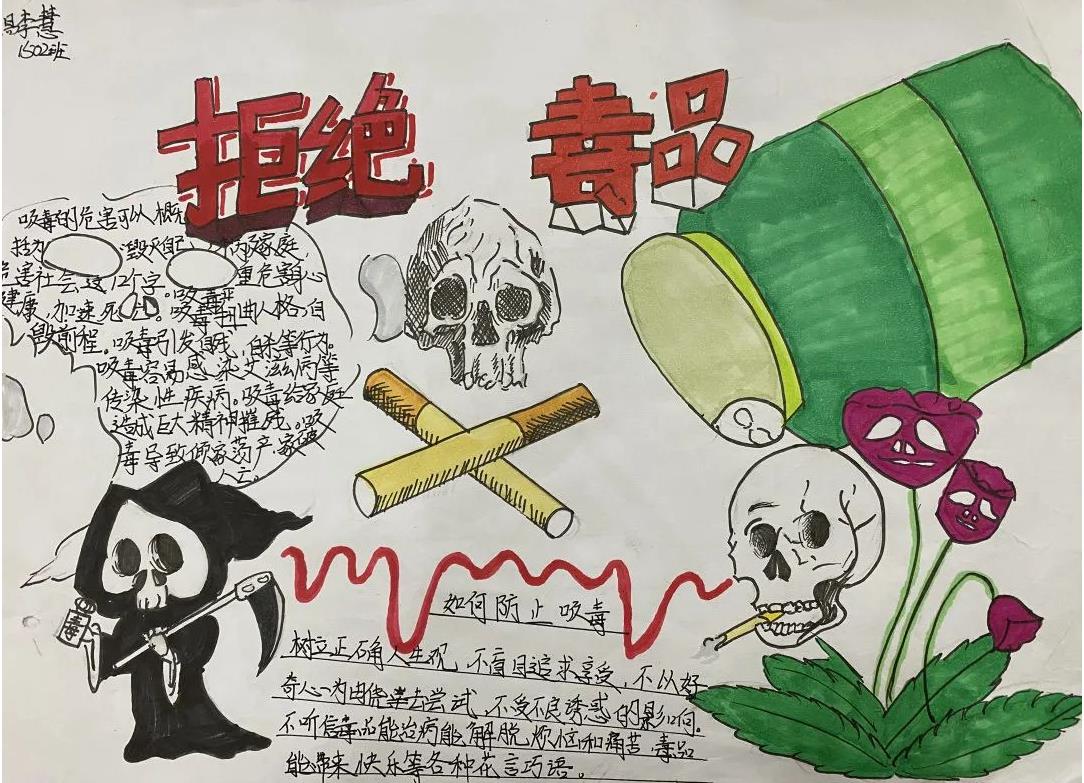 李慧
1502班
拒绝 毒品
吸毒的危害可以概
括为 毁灭自己
家庭,
危害社会这12个字。
重危害身心
健康,加速死亡。吸毒
吸毒扭曲人格,自
毁前程。吸毒引发自残,自杀等行为。
吸毒容易感染艾滋病等
传染性疾病。吸毒给家庭
造成巨大精神摧残。吸
毒导致倾家荡产,家破
人亡。
毒
如何防止吸毒
树立正确人生观,不盲目追求享受,不以好
奇心为由侥幸去尝试,不受不良诱惑的影响。
不听信毒品能治病能解脱烦恼和痛苦,毒品
能带来快乐等各种花言巧语。